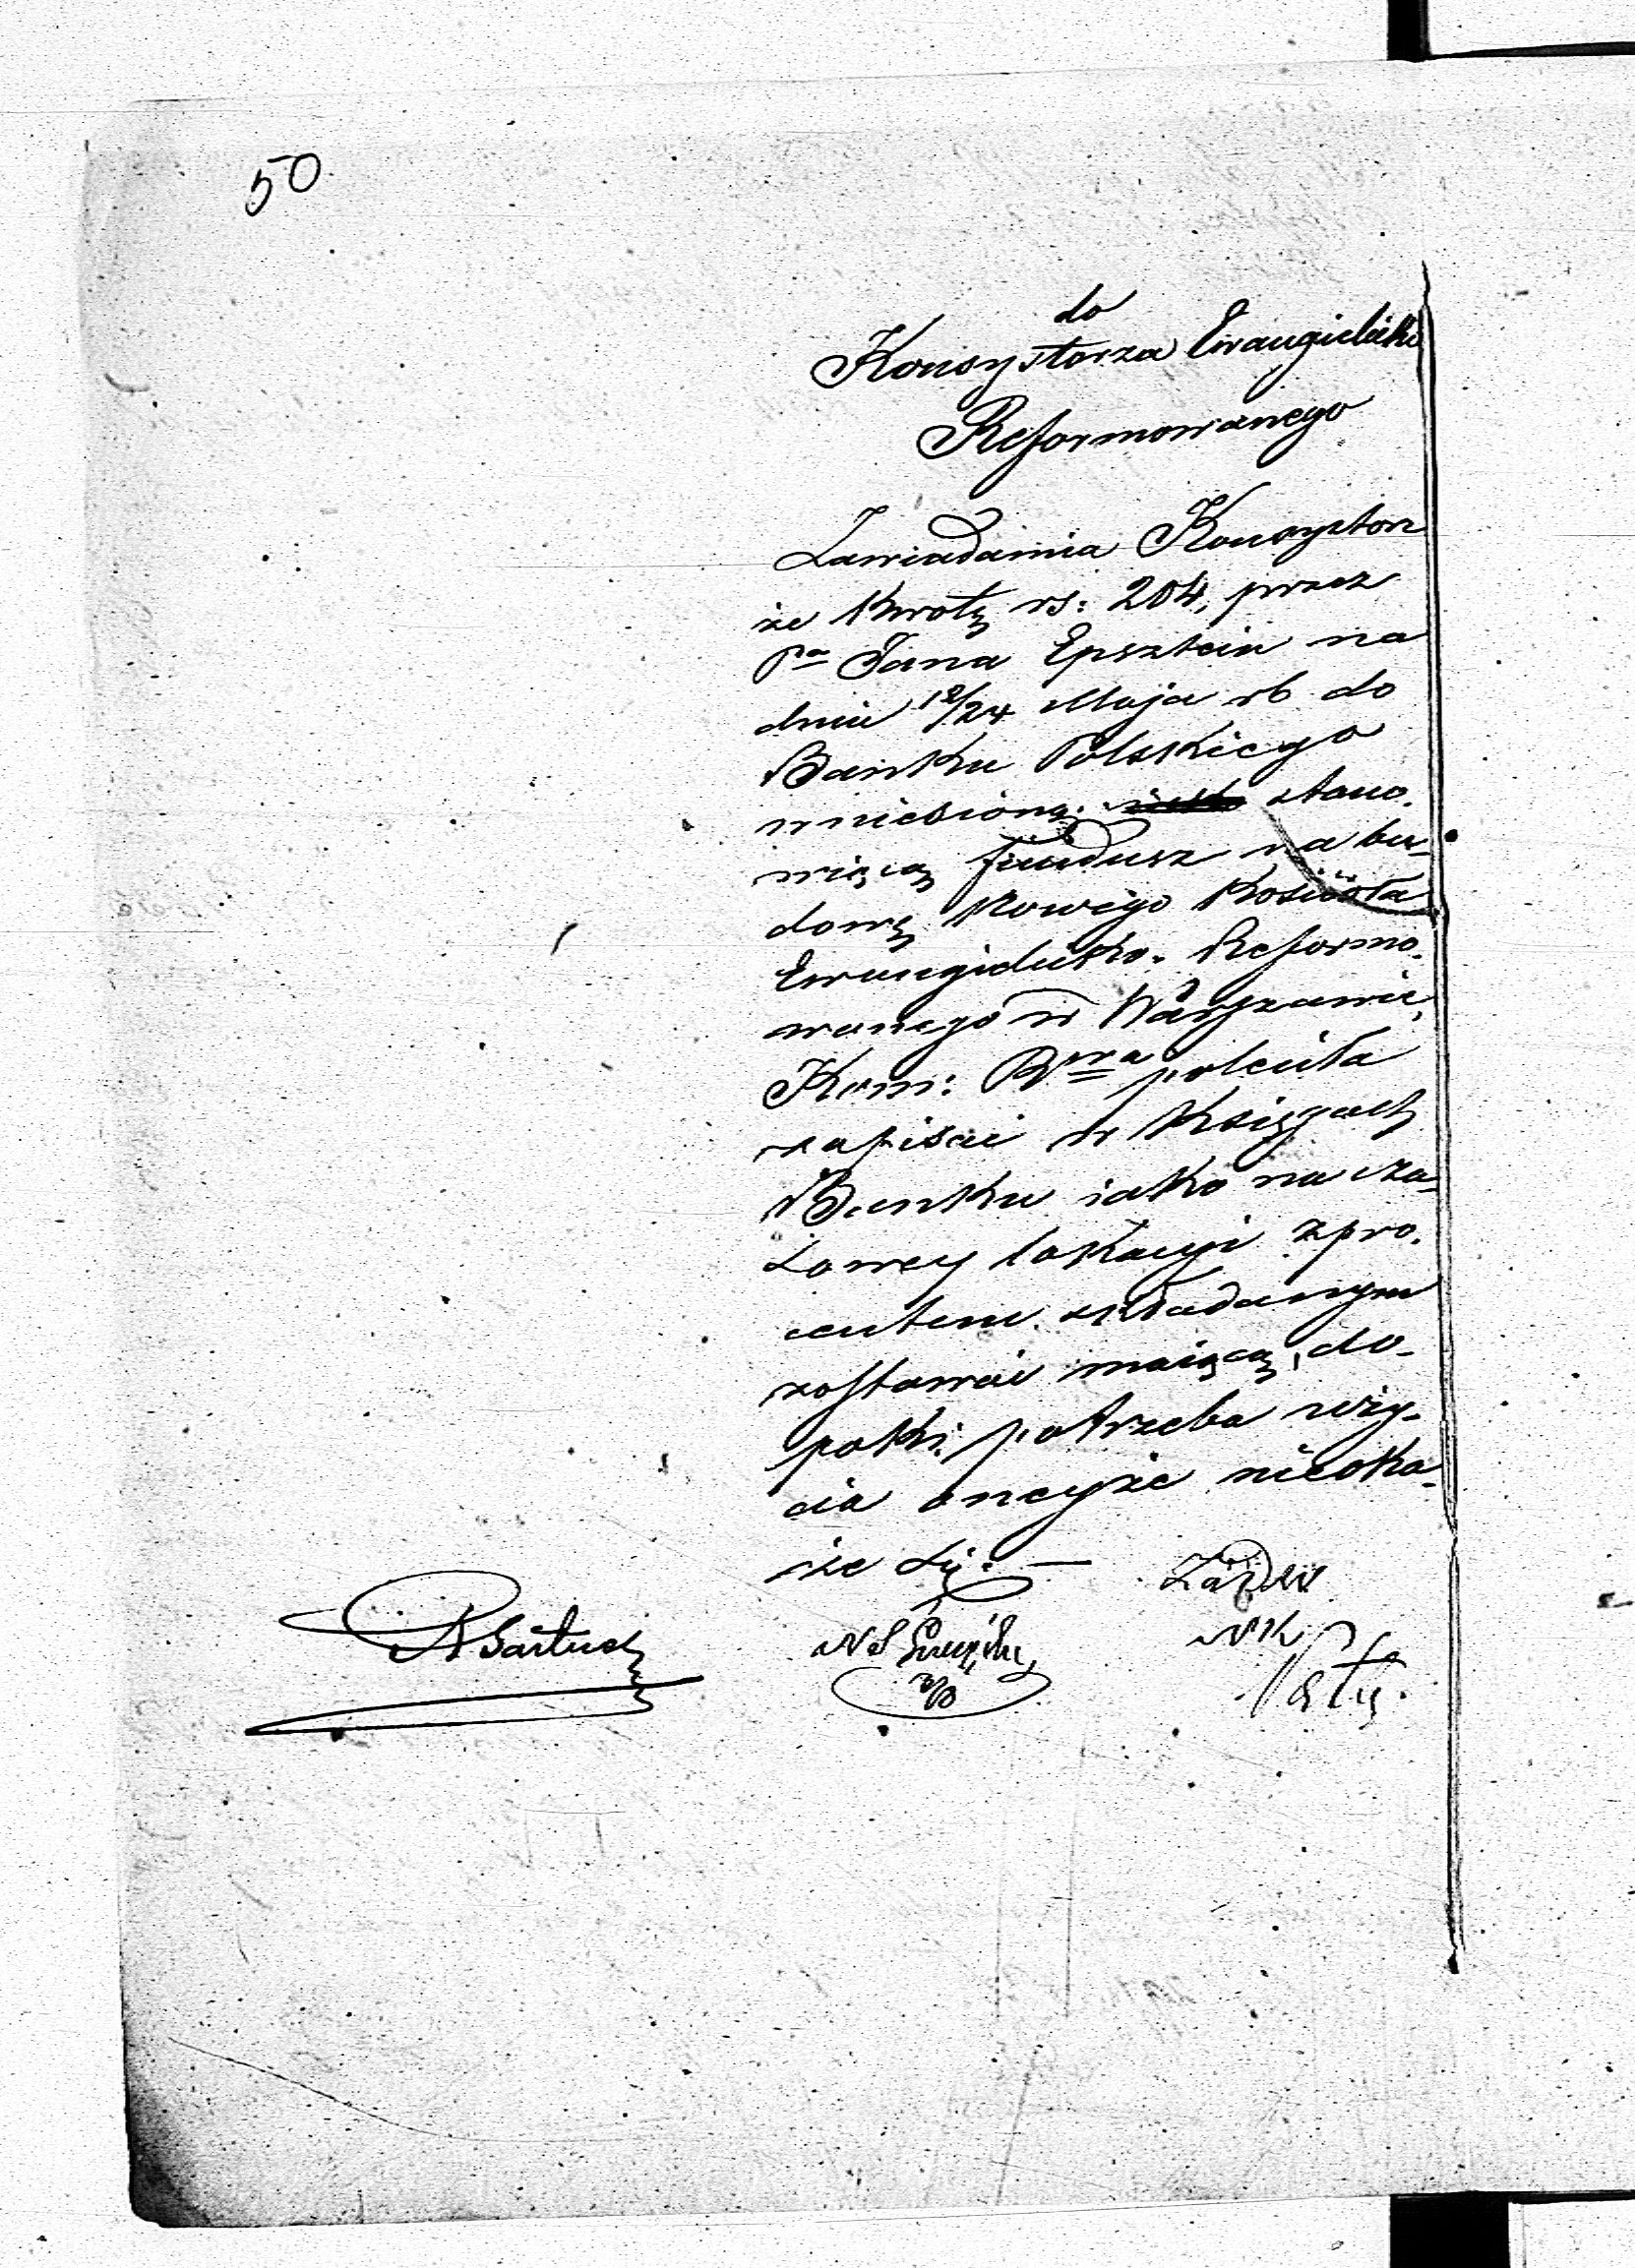 50
do
Konsystorza Ewangielicko
Reformowanego
Zawiadamia Konsystorz
że kwotę rs: 204, przez
Pa Jana Epsztein na
dniu 12/24 Maja rb do
Banku Polskiego
wniesioną stano.
wiącą fundusz na bu-
dowę Nowego Kościoła
Ewangielicko. Reformo.
wanego w Warszawie,
Kom: Rwa poleciła
zapisać w Księgach
Banku iako na cza-
sowey lokacyi z pro.
centem składanym
zostawać maiącą, do-
poki potrzeba uży-
cia oneyże nieoka-
że się. —